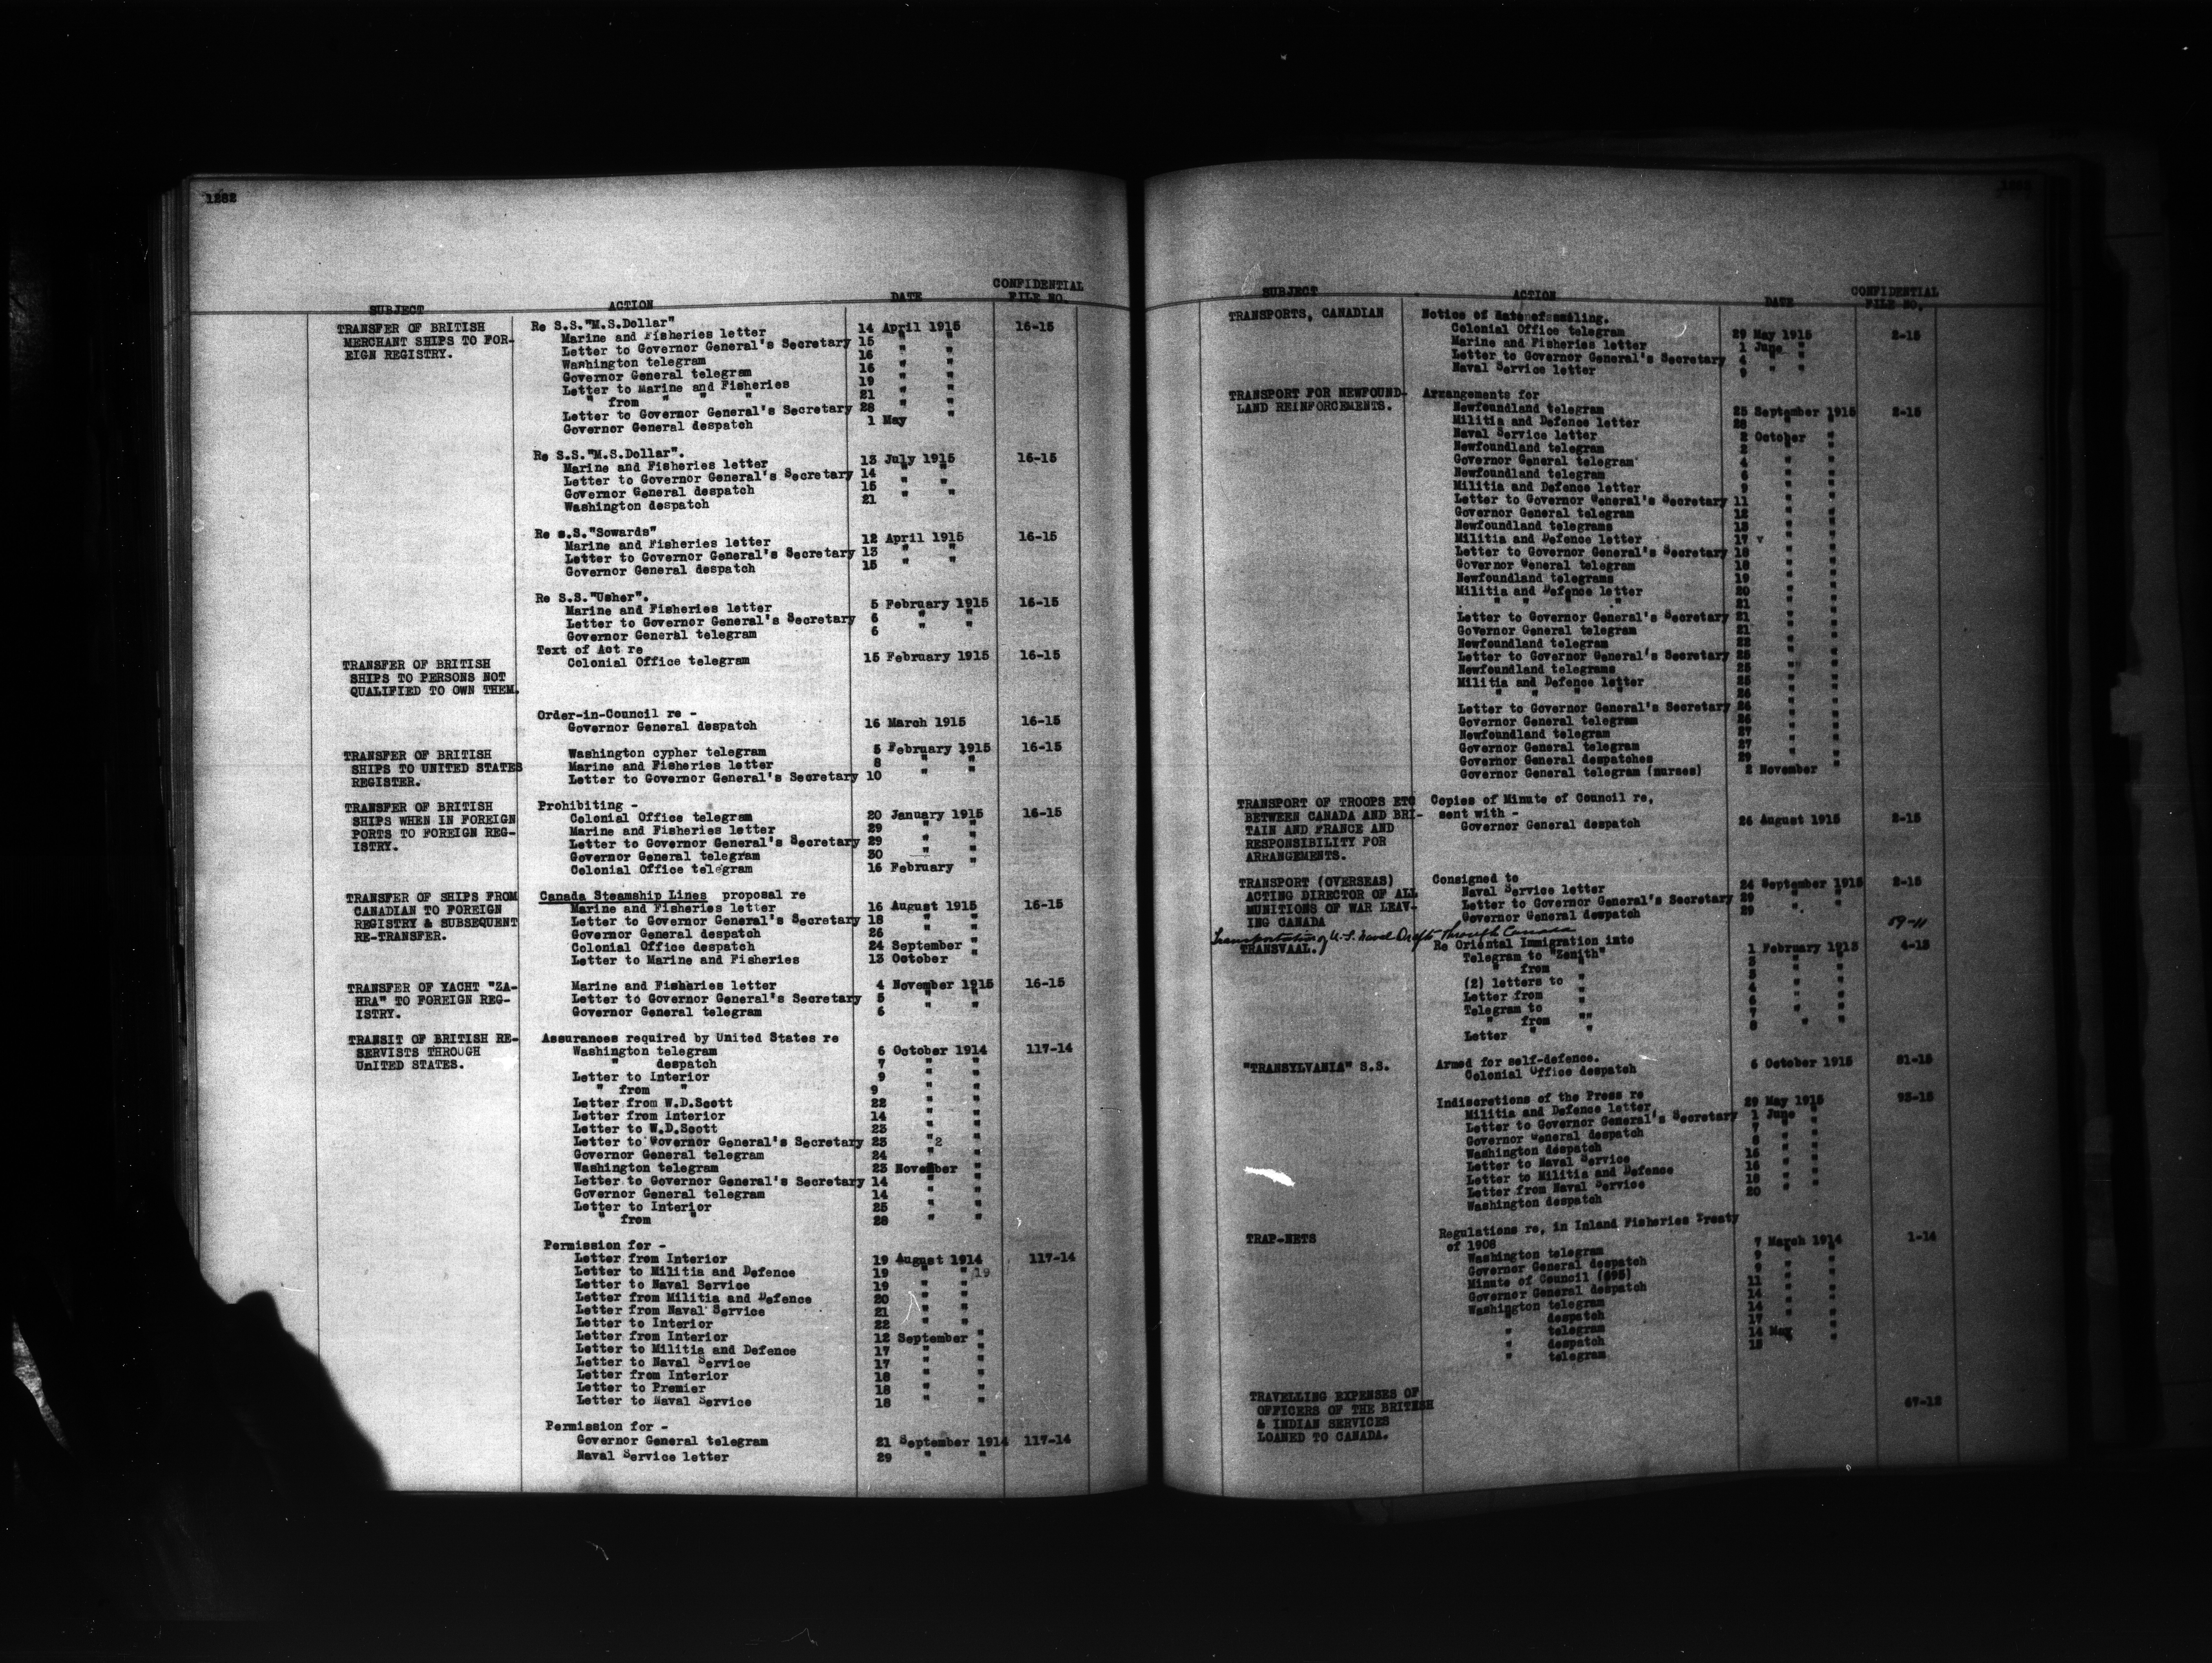 1282
SUBJECT ACTION DATE CONFIDENTIAL FILE NO.
TRANSFER OF BRITISH MERCHANT SHIPS TO FOR-EIGN REGISTRY.
Re S.S."M.S.Dollar"
Marine and Fisheries letter 14 April 1915 16-15
Letter to Governor General's Secretary 15 " "
Washington telegram 16 " "
Governor General telegram 16 " "
Letter to Marine and Fisheries 19 " "
" from " " " 21 " "
Letter to Governor General's Secretary 28 " "
Governor General despatch 1 May "
Re S.S."M.S.Dollar".
Marine and Fisheries letter 13 July 1915 16-15
Letter to Governor General's Secretary 14 " "
Governor General despatch 15 " "
Washington despatch 21 " "
Re s.S."Sowards"
Marine and Fisheries letter 12 April 1915 16-15
Letter to Governor General's Secretary 13 " "
Governor General despatch 15 " "
Re S.S."Usher".
Marine and Fisheries letter 5 February 1915 16-15
Letter to Governor General's Secretary 6 " "
Governor General telegram 6 " "
TRANSFER OF BRITISH
SHIPS TO PERSONS NOT
QUALIFIED TO OWN THEM.
Text of Act re
Colonial Office telegram 15 February 1915 16-15
Order-in-Council re -
Governor General despatch 16 March 1915 16-15
TRANSFER OF BRITISH
SHIPS TO UNITED STATES
REGISTER.
Washington cypher telegram 5 February 1915 16-15
Marine and Fisheries letter 8 " "
Letter to Governor General's Secretary 10 " "
TRANSFER OF BRITISH
SHIPS WHEN IN FOREIGN
PORTS TO FOREIGN REG-
ISTRY.
Prohibiting -
Colonial Office telegram 20 January 1915 16-15
Marine and Fisheries letter 29 " "
Letter to Governor General's Secretary 29 " "
Governor General telegram 30 " "
Colonial Office telegram 16 February "
TRANSFER OF SHIPS FROM
CANADIAN TO FOREIGN
REGISTRY & SUBSEQUENT
RE-TRANSFER.
Canada Steamship Lines proposal re
Marine and Fisheries letter 16 August 1915 16-15
Letter to Governor General's Secretary 18 " "
Governor General despatch 26 " "
Colonial Office despatch 24 September "
Letter to Marine and Fisheries 13 October "
TRANSFER OF YACHT "ZA-
HRA" TO FOREIGN REG-
ISTRY.
Marine and Fisheries letter 4 November 1915 16-15
Letter to Governor General's Secretary 5 " "
Governor General telegram 6 " "
TRANSIT OF BRITISH RE-
SERVISTS THROUGH
UnITED STATES.
Assurances required by United States re
Washington telegram 6 October 1914 117-14
" despatch 7 " "
Letter to Interior 9 " "
" from " 9 " "
Letter from W.D.Scott 22 " "
Letter from Interior 14 " "
Letter to W.D.Scott 23 " "
Letter to Governor General's Secretary 23 " "
Governor General telegram 24 " "
Washington telegram 23 November "
Letter to Governor General's Secretary 14 " "
Governor General telegram 14 " "
Letter to Interior 25 " "
" from " 28 " "
Permission for -
Letter from Interior 19 August 1914 117-14
Letter to Militia and Defence 19 " "
Letter to Naval Service 19 " "
Letter from Militia and Defence 20 " "
Letter from Naval Service 21 " "
Letter to Interior 22 " "
Letter from Interior 12 September "
Letter to Militia and Defence 17 " "
Letter to Naval Service 17 " "
Letter from Interior 18 " "
Letter to Premier 18 " "
Letter to Naval Service 18 " "
Permission for -
Governor General telegram 21 September 1914 117-14
Naval Service letter 29 " "
SUBJECT ACTION DATE CONFIDENTIAL FILE NO.
TRANSPORTS, CANADIAN
Notice of date of sailing.
Colonial Office telegram 29 May 1915 2-15
Marine and Fisheries letter 1 June "
Letter to Governor General's Secretary 4 " "
Naval Service letter 9 " "
TRANSPORT FOR NEWFOUND-
LAND REINFORCEMENTS.
Arrangements for
Newfoundland telegram 25 September 1915 2-15
Militia and Defence letter 28 " "
Naval Service letter 2 October "
Newfoundland telegram 2 " "
Governor General telegram 4 " "
Newfoundland telegram 6 " "
Militia and Defence letter 9 " "
Letter to Governor General's Secretary 11 " "
Governor General telegram 12 " "
Newfoundland telegrams 13 " "
Militia and Defence letter 17 " "
Letter to Governor General's Secretary 18 " "
Governor General telegram 18 " "
Newfoundland telegrams 19 " "
Militia and Defence letter 20 " "
" " " " 21 " "
Letter to Governor General's Secretary 21 " "
Governor General telegram 21 " "
Newfoundland telegram 22 " "
Letter to Governor General's Secretary 25 " "
Newfoundland telegrams 25 " "
Militia and Defence letter 25 " "
" " " " 26 " "
Letter to Governor General's Secretary 26 " "
Governor General telegram 26 " "
Newfoundland telegram 27 " "
Governor General telegram 27 " "
Governor General despatches 29 " "
Governor General telegram (nurses) 2 November "
TRANSPORT OF TROOPS ETC
BETWEEN CANADA AND BRI-
TAIN AND FRANCE AND
RESPONSIBILITY FOR
ARRANGEMENTS.
Copies of Minute of Council re,
sent with -
Governor General despatch 26 August 1915 2-15
TRANSPORT (OVERSEAS)
ACTING DIRECTOR OF ALL
MUNITIONS OF WAR LEAV-
ING CANADA
Consigned to
Naval Service letter 24 September 1915 2-15
Letter to Governor General's Secretary 29 " "
Governor General despatch 29 " "
Transportation of U.S. Naval Drafts through Canada 59-11
TRANSVAAL.
Re Oriental Immigration into
Telegram to "Zenith" 1 February 1913 4-13
" from " 3 " "
(2) letters to " 3 " "
Letter from " 4 " "
Telegram to " 6 " "
" from " 7 " "
Letter " " 8 " "
"TRANSYLVANIA" S.S.
Armed for self-defence.
Colonial Office despatch 6 October 1915 81-15
Indiscretions of the Press re
Militia and Defence letter 29 May 1915 93-15
Letter to Governor General's Secretary 1 June "
Governor General despatch 7 " "
Washington despatch 8 " "
Letter to Naval Service 16 " "
Letter to Militia and Defence 16 " "
Letter from Naval Service 18 " "
Washington despatch 20 " "
TRAP-NETS
Regulations re, in Inland Fisheries Treaty
of 1908
Washington telegram 7 March 1914 1-14
Governor General despatch 9 " "
Minute of Council (695) 9 " "
Governor General despatch 11 " "
Washington telegram 14 " "
" despatch 14 " "
" telegram 17 " "
" despatch 14 May "
" telegram 15 "
TRAVELLING EXPENSES OF
OFFICERS OF THE BRITISH
& INDIAN SERVICES
LOANED TO CANADA.
67-12